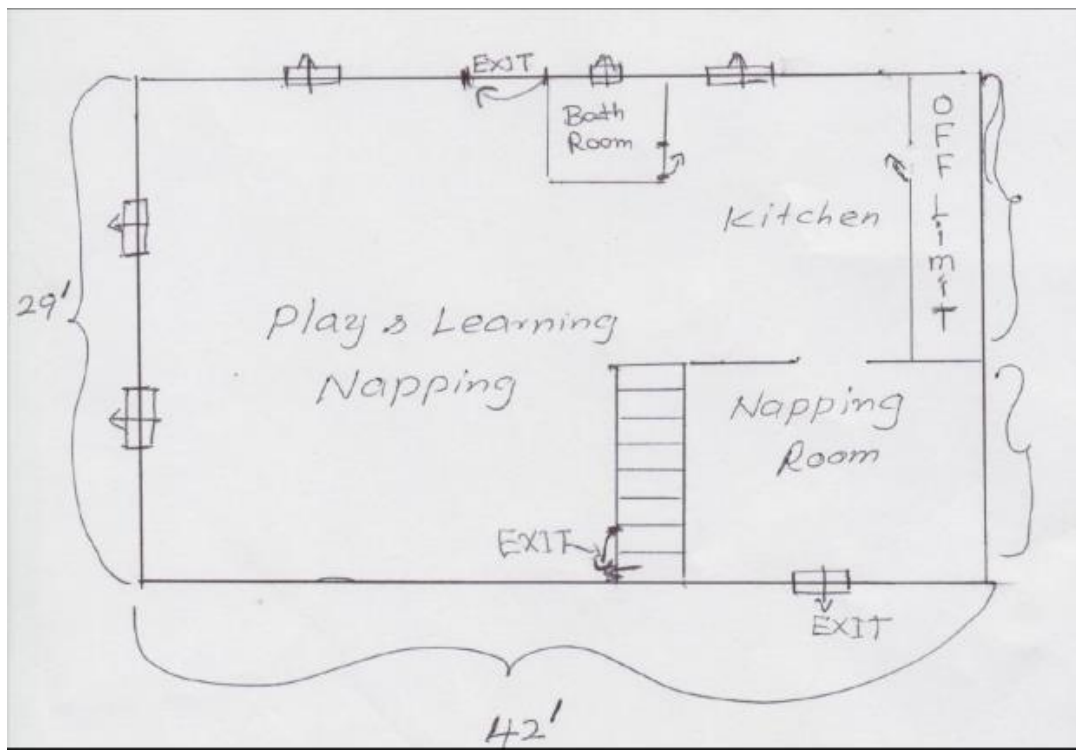 EXIT
Bath
Room
OFF Limit
Kitchen
29'
Play & Learning
Napping
Napping
Room
EXIT
EXIT
42'